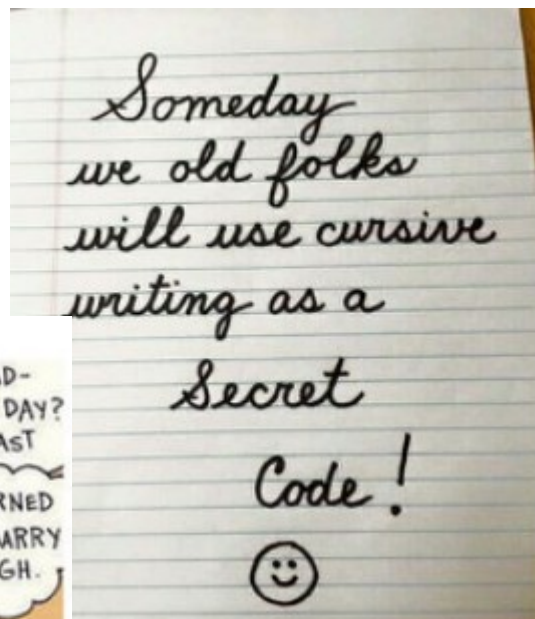 Someday
we old folks
will use cursive
writing as a
Secret
Code!
DAY?
AST
RNED
ARRY
GH.